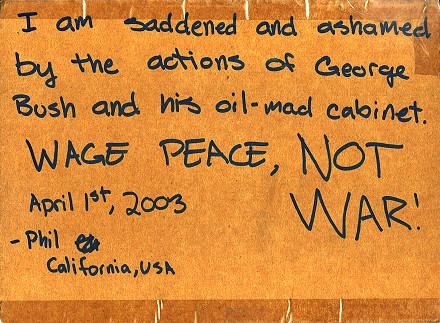 I am saddened and ashamed
by the actions of George
Bush and his oil-mad cabinet.
WAGE PEACE, NOT
WAR!
April 1st, 2003
- Phil
California, USA